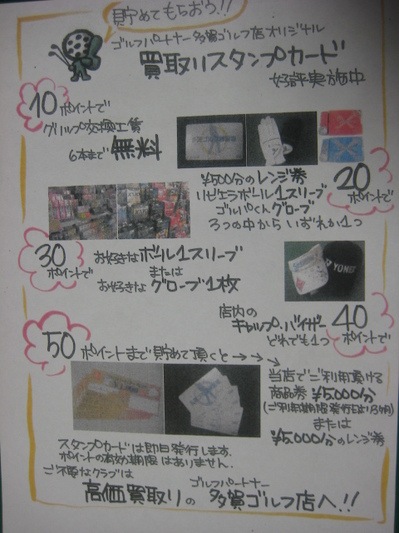 貯めてもらおう!!
ゴルフパートナー多賀ゴルフ店オリジナル
買取りスタンプカード
好評実施中
10ポイントで
グリップ交換工賃
6本まで無料
20ポイントで
¥500分のレンジ券
リビエラボール1スリーブ
ゴルパくんグローブ
3つの中からいずれか1つ
30ポイントで
お好きなボール1スリーブ
または
お好きなグローブ1枚
40ポイントで
店内の
キャップ・バイザー
どれでも1つ
50ポイントまで貯めて頂くと→→→
当店でご利用頂ける
商品券¥5,000分
または
¥5,000分のレンジ券
スタンプカードは即日発行します。
ポイントの有効期限はありません。
ご不要なクラブは
高価買取りの
ゴルフパートナー
多賀ゴルフ店へ!!